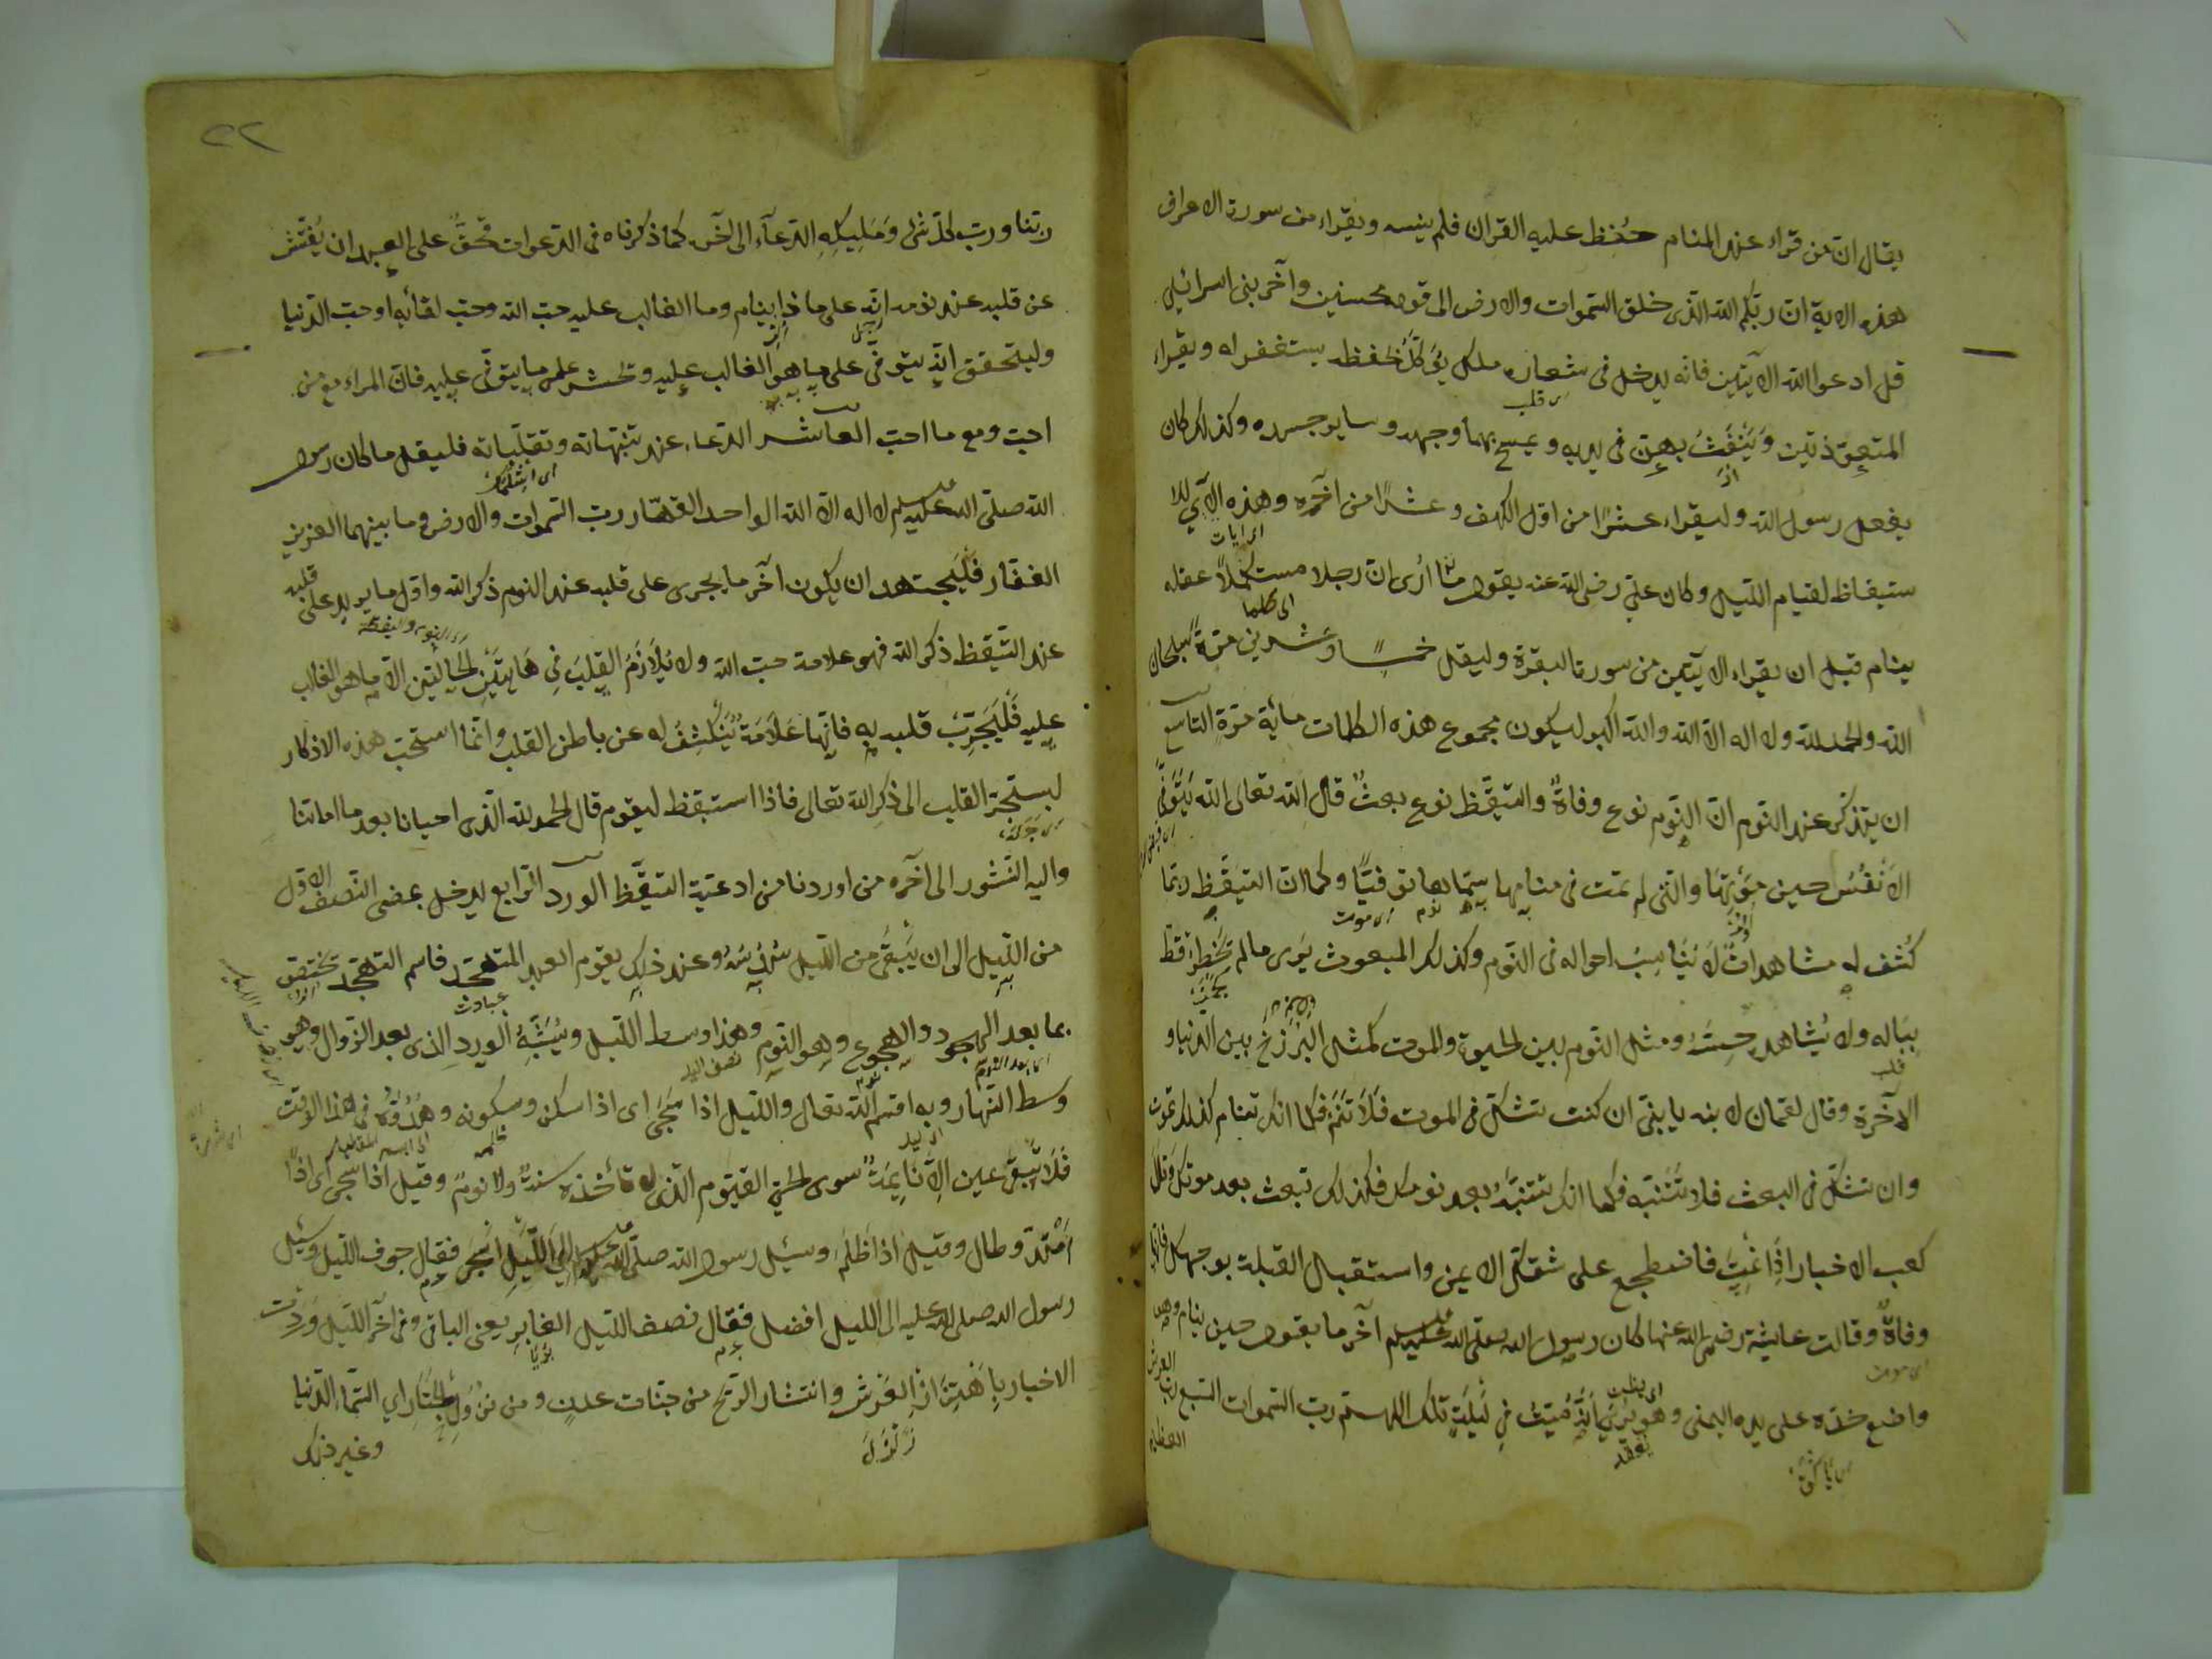 يقال ان من قراء عند المنام حُفِظ عليه القران فلم ينسه ويقراء من سورة الاعراف
هذه الاية ان ربكم الله الذى خلق السموات والارض الى قوله محسنين وآخر بنى اسرائيل
قل ادعوا الله الآيتين فانه يدخل فى شعاره ملك يُوَكّلُ بحفظه يستغفر له ويقراء
المتعوّذتين وَيَنْفَثُ بهن فى يديه ويمسح بهما وجهه وساير جسده وكذلك كان
يفعل رسول الله وليقراء عشرًا من اوّل الكهف وعشرًا من آخره وهذه الآي للا
ستيقاظ لقيام الليل وكان علىّ رضى الله عنه يقول ما أرى ان رجلا مستكملاً عقله
ينام قبل ان يقراء الآيتين من سورة البقرة وليقل خمسًا وعشرين مرّة سبحان
الله والحمد لله ولا اله الا الله والله اكبر ليكون مجموع هذه الكلمات مائة مرّة التاسع
ان يتذكر عند النوم انّ النوم نوع وفاة والتيقّظ نوع بعث قال الله تعالى الله يَتَوَفَّى
الاَنْفُسَ حين مَوْتِهَا والتى لم تمت فى منامِها سمّاهما توفيًّا وكما ان المتيقّظ ربّما
كُشف له مشاهدات لا تُنَاسِبُ احواله فى النوم وكذلك المبعوث يَرى مالم يَخْطُرْ قط
بِبَاله ولا يُشاهد حِسَّهُ ومثل النوم بين الحيوة والموت كمثل البَرْزخ بين الدنيا و
الآخرة وقال لقمان لابنه يا بنىّ ان كنت تشكّ فى الموت فَلَا تَنَمْ فكما انك تنام كذلك تموت
وان تشكّ فى البعث فلا تَنْتَبِه فكما انك تنتبه بعد نومك فكذلك تبعث بعد موتك وقال
كعب الاخبار اذا نِمْتَ فاضطجع على شقّك الايمن واستقبال القبلة بوجهك فانها
وفاة وقالت عايشة رضى الله عنها كان رسول الله صلى الله عليه وسلم آخر ما يقول حين ينام وهو
واضع خدّه على يده اليمنى وهو يُرى اَنَّهُ مَيّتٌ فِي لَيلَتِه تلك اللهم ربّ السموات السبع ربّ العرش العظيم
٥٢
ربّنا وربّ كلّ شئ وَمَلِيكِهِ الدعآء الى آخره كما ذكرناه فى الدعوات فَحَقٌّ على العبد ان يُفَتّش
عن قلبه عند نومه انه على ما ذا ينام وما الغالب عليه حبّ الله وحبّ لقائه او حبّ الدنيا
وليتحقق انّه يتوفّى على ما هو الغالب عليه ويحشر على ما يتوفّى عليه فانّ المراء مع من
احبّ ومع ما احبّ العاشر الدعاء عند تنبّهاته وتقلّباته فليقل ما كان رسول
الله صلى الله عليه وسلم لا اله الا الله الواحد القهّار ربّ السموات والارض وما بينهما العزيز
الغفّار فَلْيَجتهد ان يكون آخر ما يجرى على قلبه عند النوم ذكر الله واوّل ما يرد على قلبه
عند التيقّظ ذكر الله فهو علامة حبّ الله ولا يُلَازِمُ القلبَ فِي هَاتَيْنِ الحالتين الا ما هو الغالب
عليه فَلْيُجَرّبْ قلبه به فانّها عَلَامَةٌ يَنْكَشِفُ له عن باطن القلب وانّما استحبّ هذه الاذكار
ليستجرّ القلب الى ذكر الله تعالى فاذا استيقظ ليقوم قال الحمد لله الّذى احيانا بعد ما اماتنا
واليه النشور الى آخره من اوردنا من ادعية التيقّظ الورد الرابع يدخل بمضى النصف الاوّل
من الليل الى ان يَبْقَى من الليل سُدُسُهُ وعند ذلك يقوم العبد للتهجّد فاسم التهجّد يختصّ
بما بعد الهجود والهجوع وهو النوم وهذا وسط الليل ويُشْبِه الورد الذى بعد الزوال وهو
وسط النهار وبه اقسم الله تعالى والليل اذا سَجَى اى اذا سكن وسكونه وهُدُوُّه فى هذا الوقت
فلا يَبْقَى عين الّا نَايِمَةٌ سوى الحىّ القيّوم الذى لا تأخذه سنة ولا نوم وقيل اذا سجى اى اذا
اِمْتَدّ وطال وقيل اذا اَظْلَمَ وسئل رسول الله صلى الله عليه وسلم اىّ اللّيلِ اَسْمَعُ فقال جوف الليل وسئل
رسول الله صلى الله عليه اى الليل افضل فقال نصف الليل الغابِرِ يعنى الباقى وفى آخر الليل وَرَدَت
الاخبار باِهْتِزَازِ العَرْش وانتشار الريح من جنّات عدن ومن نُزُولِ الجَبّارِ الى السّماء الدنيا
وغير ذلك